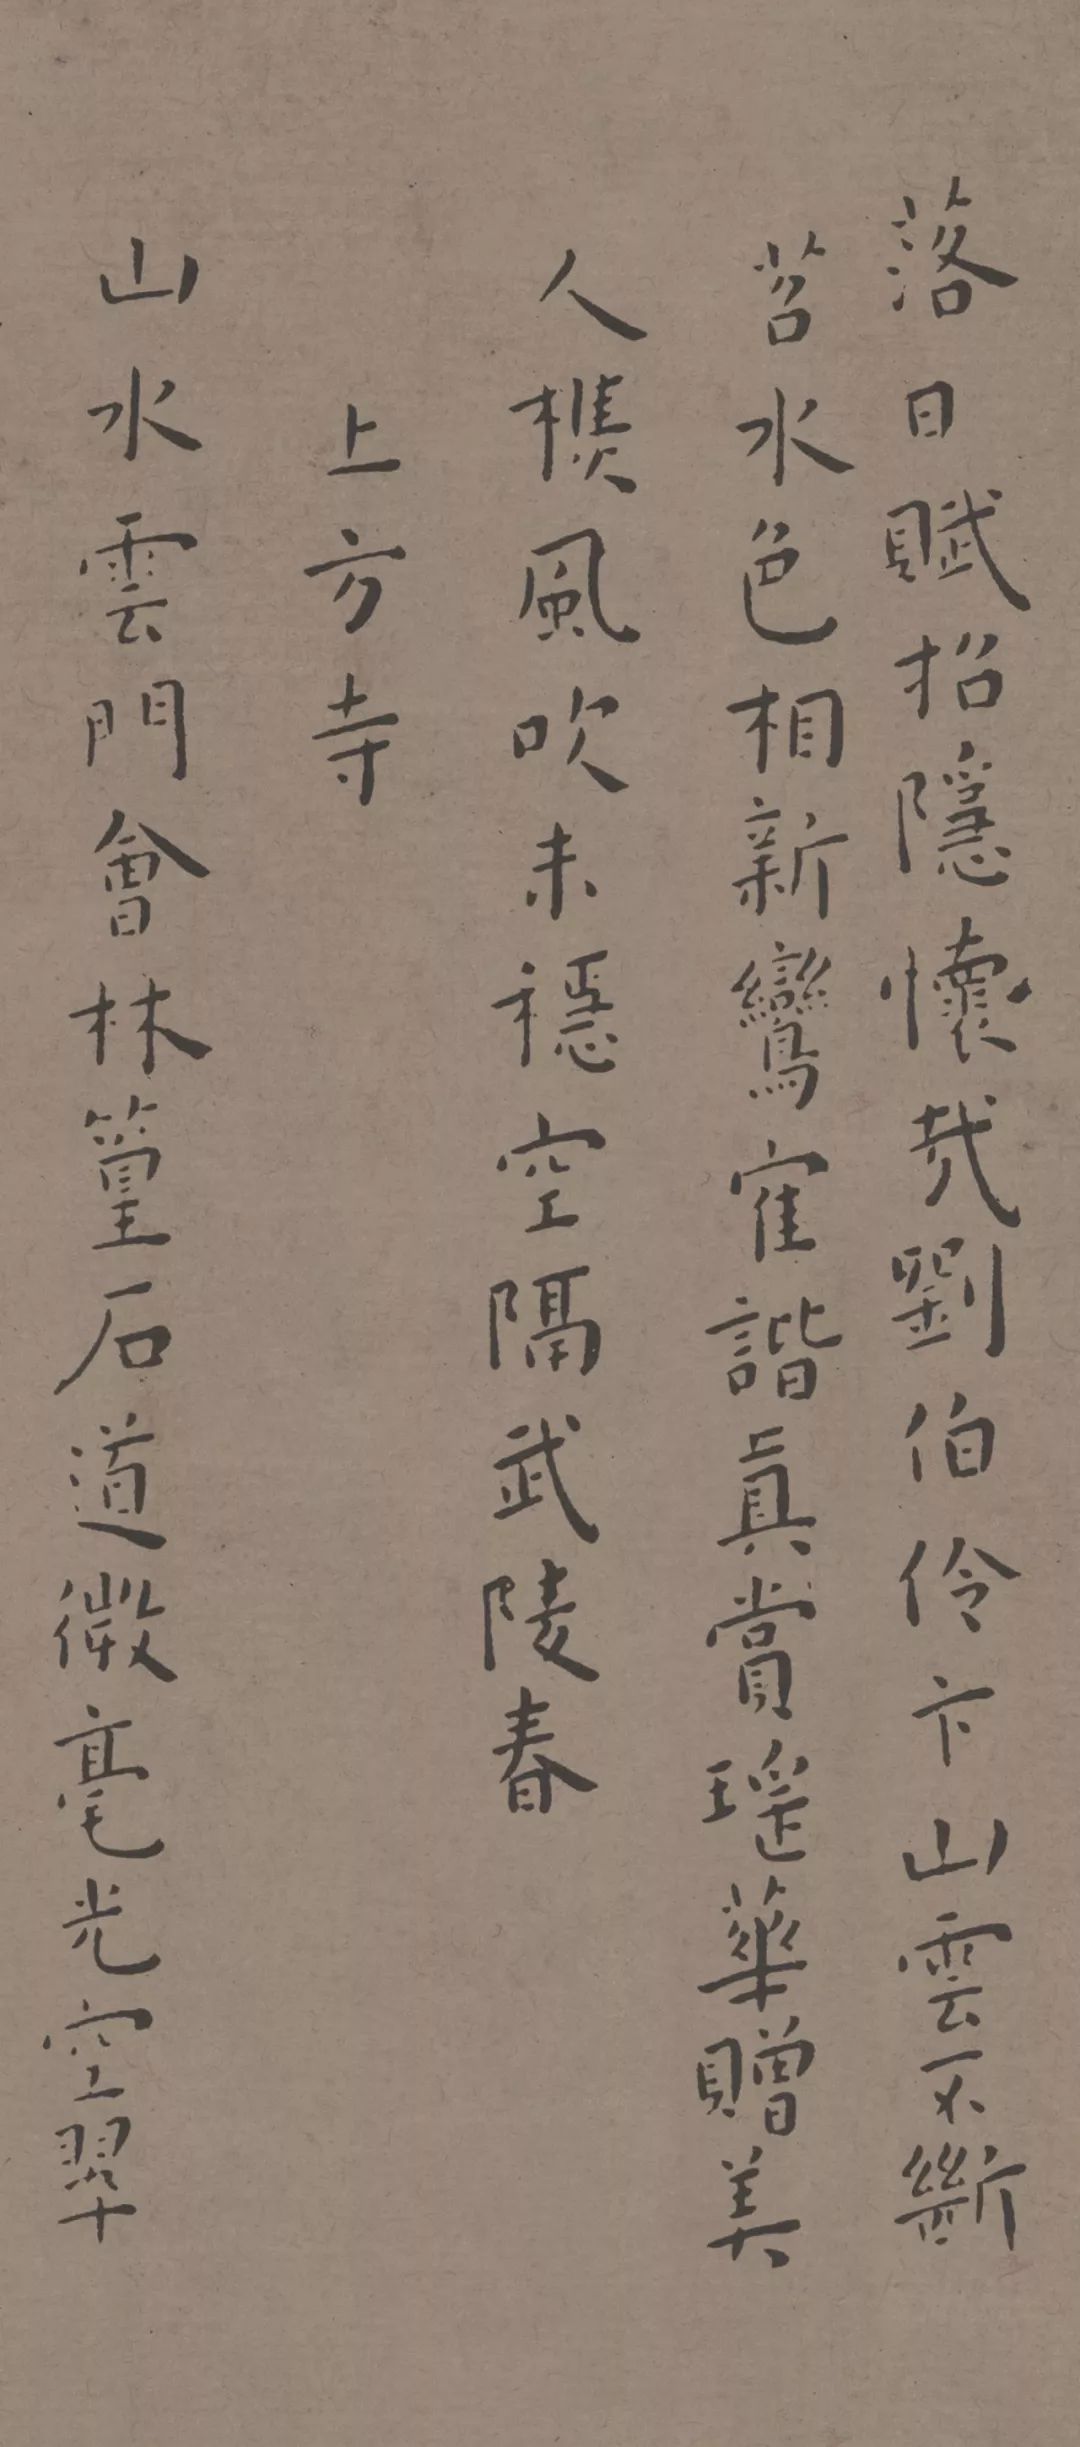 落日賦招隱懷哉劉伯伶卞山雲不斷
苕水色相新鸞寉諧真賞瑤華贈美
人樵風吹未穩空隔武陵春
上方寺
山水雲門會林篁石道微毫光空翠